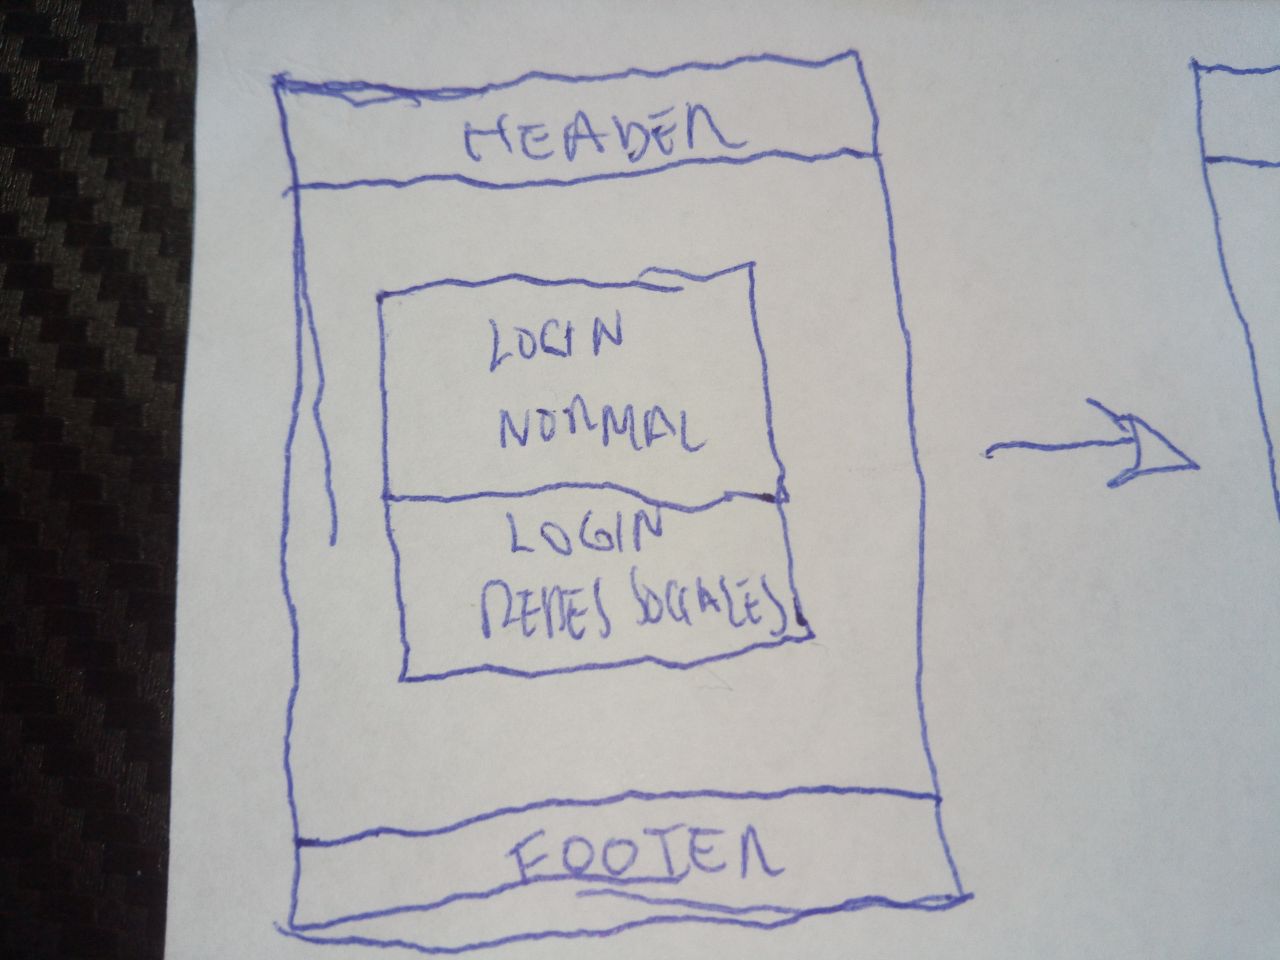 HEADER
LOGIN
NORMAL
LOGIN
REDES SOCIALES
FOOTER